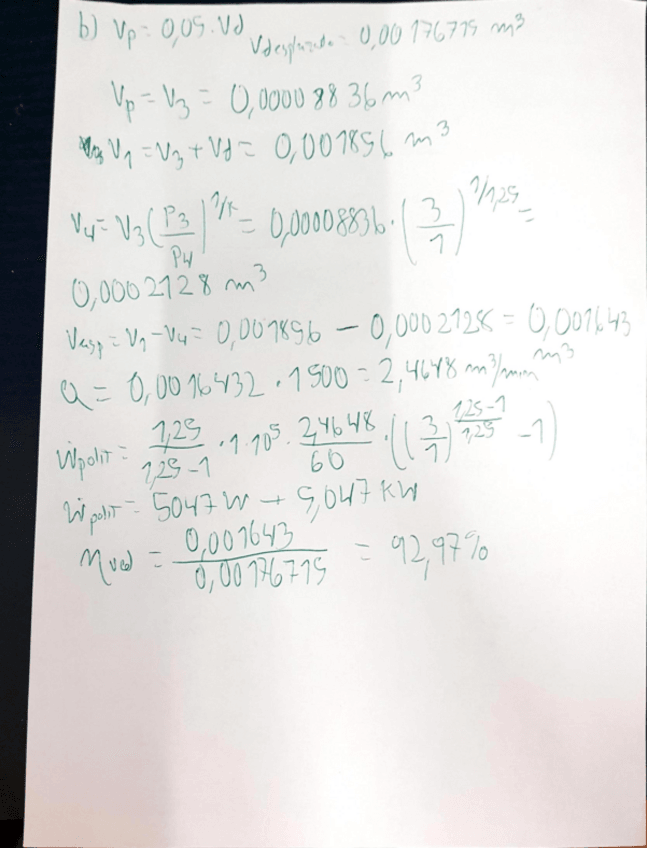 b) Vp = 0,05 . Vd   Vdesplazado = 0,00176715 m³
Vp = V3 = 0,00008836 m³
V1 = V3 + Vd = 0,001856 m³
V4 = V3 (P3/P4)^1/k = 0,00008836 . (3/1)^1/1,25 =
0,0002128 m³
Vasp = V1 - V4 = 0,001856 - 0,0002128 = 0,001643 m³
Q = 0,0016432 . 1500 = 2,4648 m³/min
Ẇpolit = 1,25/1,25-1 . 1.10⁵ . 2,4648/60 . ((3/1)^1,25-1/1,25 - 1)
Ẇpolit = 5047 W → 5,047 KW
ηvol = 0,001643/0,00176715 = 92,97%